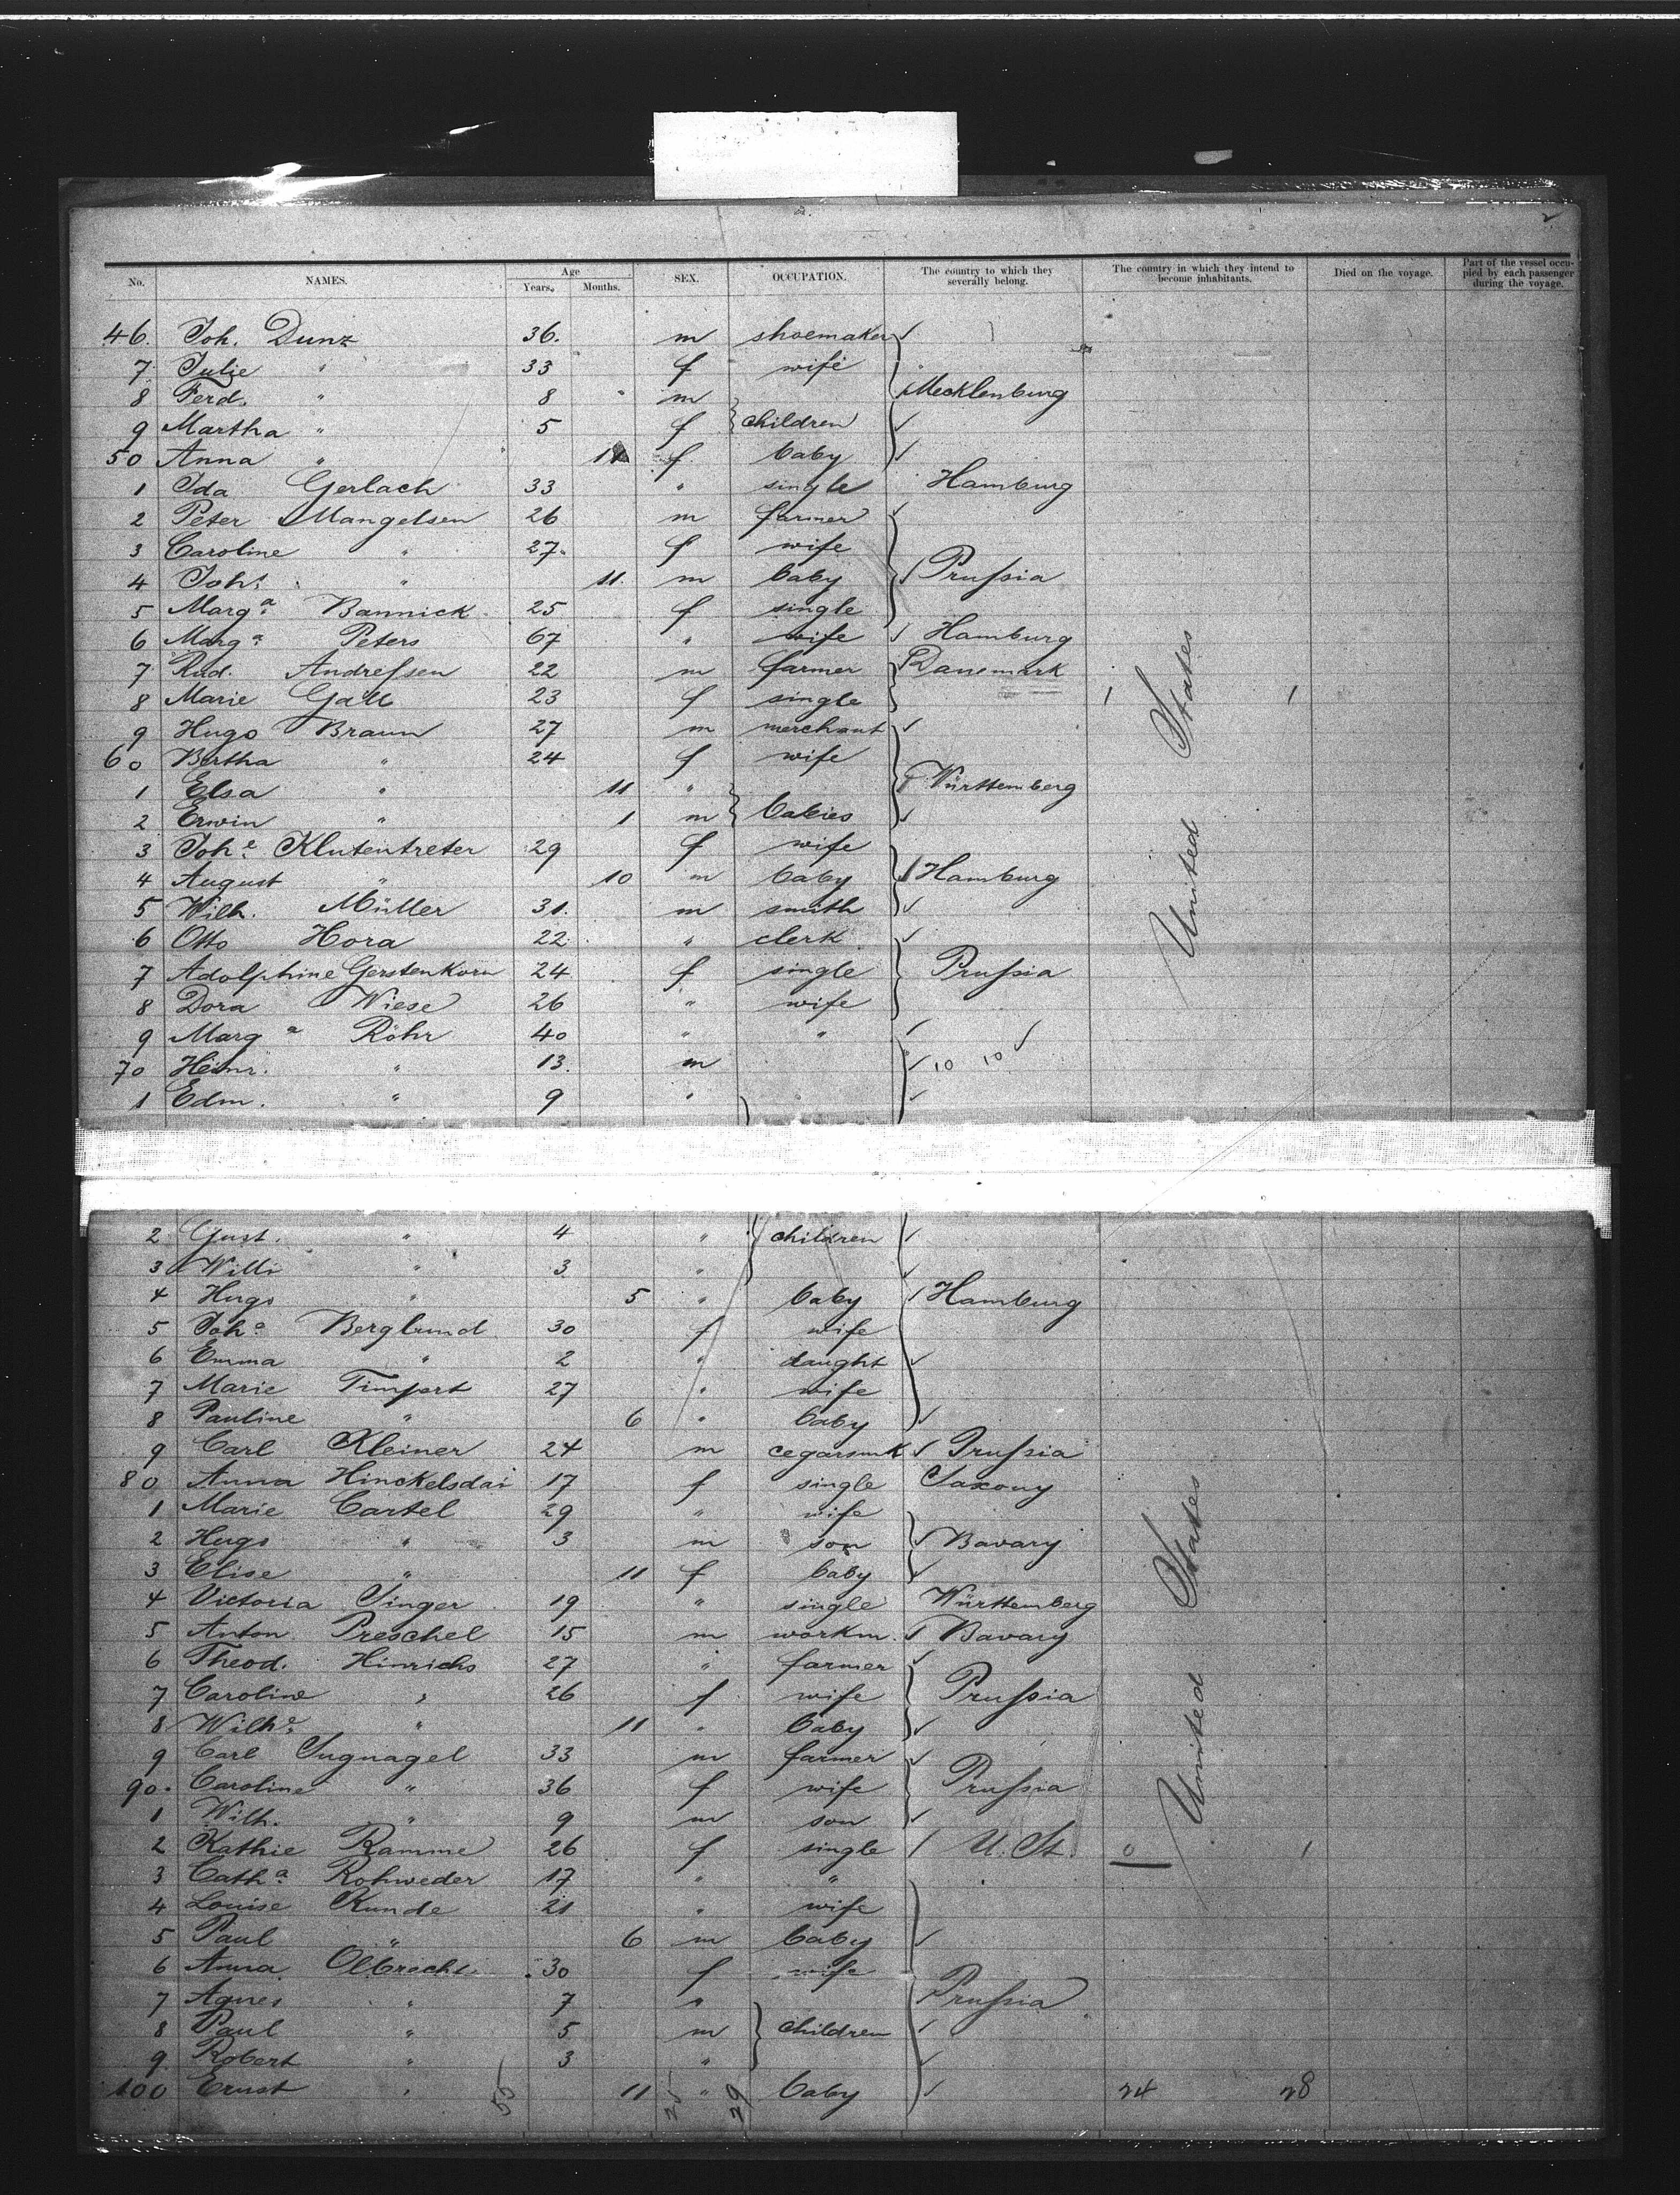 No. NAMES. Age Years. Months. SEX. OCCUPATION. The country to which they severally belong. The country in which they intend to become inhabitants. Died on the voyage. Part of the vessel occupied by each passenger during the voyage.
46. Joh. Dunz 36. m shoemaker
7 Julie " 33 f wife
8 Ferd. " 8 m Mecklenburg
9 Martha " 5 f children
50 Anna " 11 f baby
1 Ida Gerlach 33 " single Hamburg
2 Peter Mangelsen 26 m farmer
3 Caroline " 27. f wife
4 Johs. " 11. m baby Prussia
5 Marga. Bannick 25 f single
6 Marga. Peters 67 " wife Hamburg
7 Rud. Andressen 22 m farmer Danemark
8 Marie Gall 23 f single
9 Hugo Braun 27 m merchant
60 Bertha " 24 f wife
1 Elsa " 11 " Württemberg
2 Erwin " 1 m babies
3 Johe. Klutentreter 29 f wife
4 August " 10 m baby Hamburg
5 Wilh. Müller 31. m smith
6 Otto Hora 22 " clerk
7 Adolphine Gerstenkorn 24 f single Prussia
8 Dora Wiese 26 " wife
9 Marga Röhr 40 " "
70 Heinr. " 13. m 10 10
1 Edm. " 9 "
United States
2 Gust. " 4 " children
3 Willi " 3 "
4 Hugo " 5 " baby Hamburg
5 Joha. Berglund 30 f wife
6 Emma " 2 " daught
7 Marie 27 " wife
8 Pauline " 6 " baby
9 Carl Kleiner 24 m cegarmk Prussia
80 Anna Hinckelsdai 17 f single Saxony
1 Marie Cartel 29 " wife
2 Hugo " 3 m son Bavary
3 Elise " 11 f baby
4 Victoria Singer 19 " single Württemberg
5 Anton Preschel 15 m workm. Bavary
6 Theod. Hinrichs 27 " farmer
7 Caroline " 26 f wife Prussia
8 Wilhe. " 11 " baby
9 Carl Sugnagel 33 m farmer
90. Caroline " 36 f wife Prussia
1 Wilh. " 9 m son
2 Kathie Ramme 26 f single U. St. 0 1
3 Catha. Rohweder 17 " "
4 Louise Kunde 21 " wife
5 Paul " 6 m baby
6 Anna Olbrecht 30 f wife
7 Agnes " 7 " Prussia
8 Paul " 5 m children
9 Robert " 3 "
100 Ernst " 11 " baby 24 28
United States
55 25 29